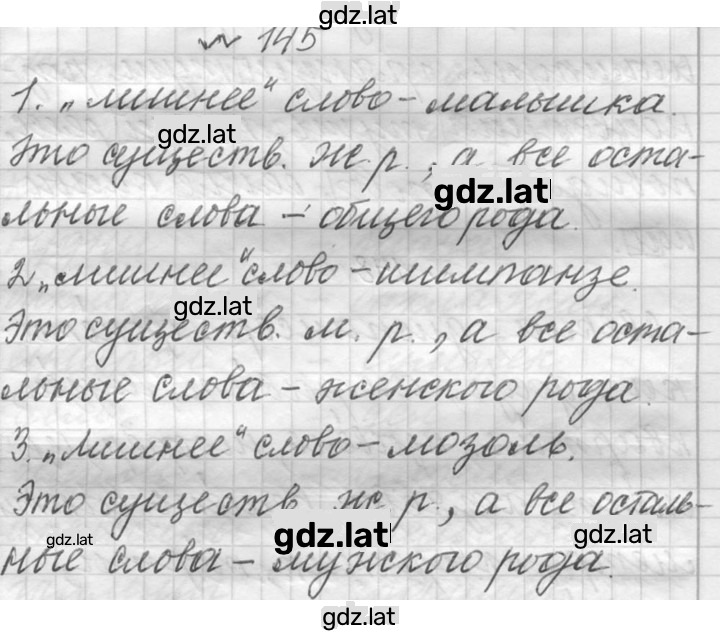 gdz.lat
№ 145
1. „лишнее“ слово - малышка.
gdz.lat
Это существ. ж. р., а все оста-
gdz.lat
льные слова - общего рода.
2. „лишнее“ слово - шимпанзе.
gdz.lat
Это существ. м. р., а все оста-
льные слова - женского рода.
3. „Лишнее“ слово - мозоль.
Это существ. ж. р., а все осталь-
gdz.lat gdz.lat gdz.lat
ные слова - мужского рода.
gdz.lat